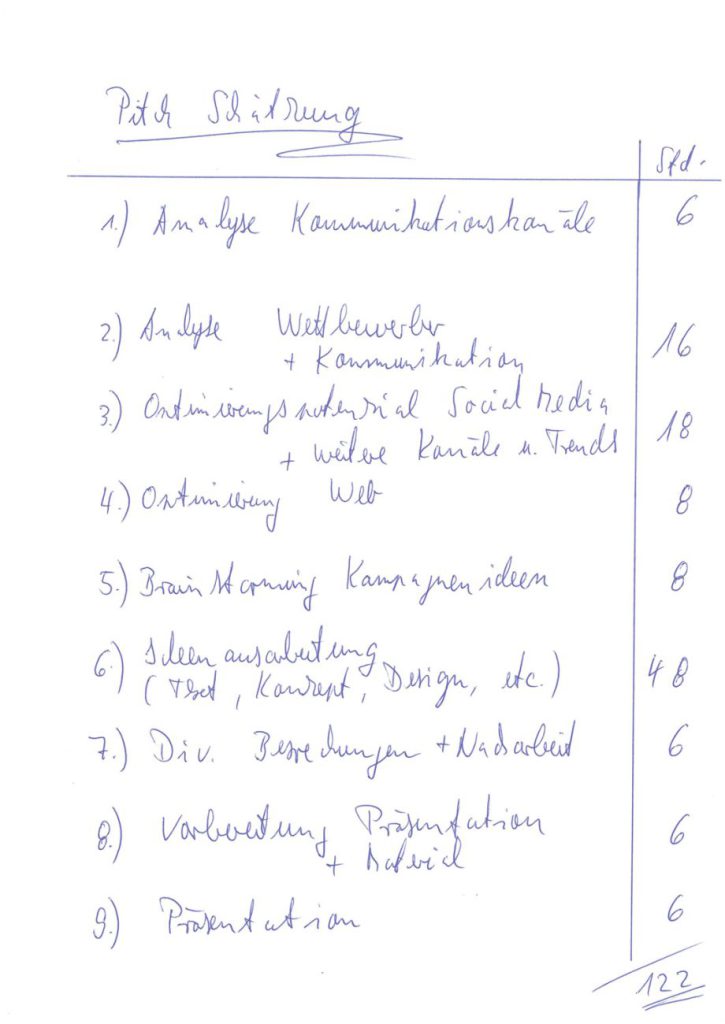 Pitch Schätzung
Std.
1.) Analyse Kommunikationskanäle 6
2.) Analyse Wettbewerber
+ Kommunikation 16
3.) Optimierungspotenzial Social Media
+ weitere Kanäle u. Trends 18
4.) Optimierung Web 8
5.) Brainstorming Kampagnenideen 8
6.) Ideenausarbeitung
(Text, Konzept, Design, etc.) 48
7.) Div. Besprechungen + Nacharbeit 6
8.) Vorbereitung Präsentation
+ Material 6
9.) Präsentation 6
122